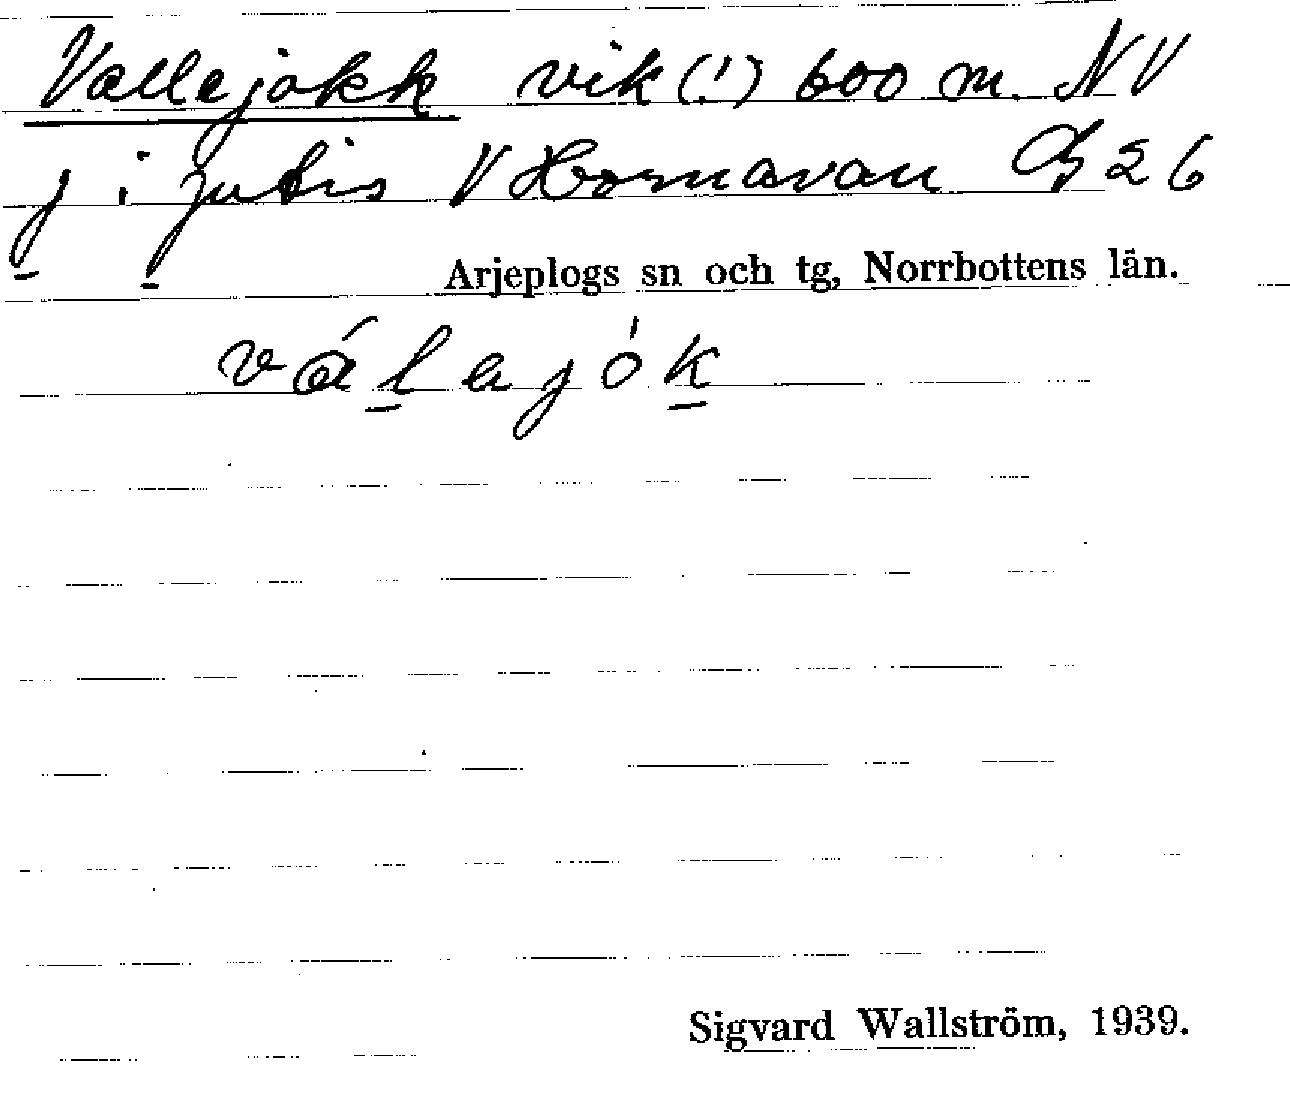 Vallejokk vik (!) 600 m. NV
j i Jutis V Hornavan 26
Arjeplogs sn och tg, Norrbottens län.
válajók
Sigvard Wallström, 1939.